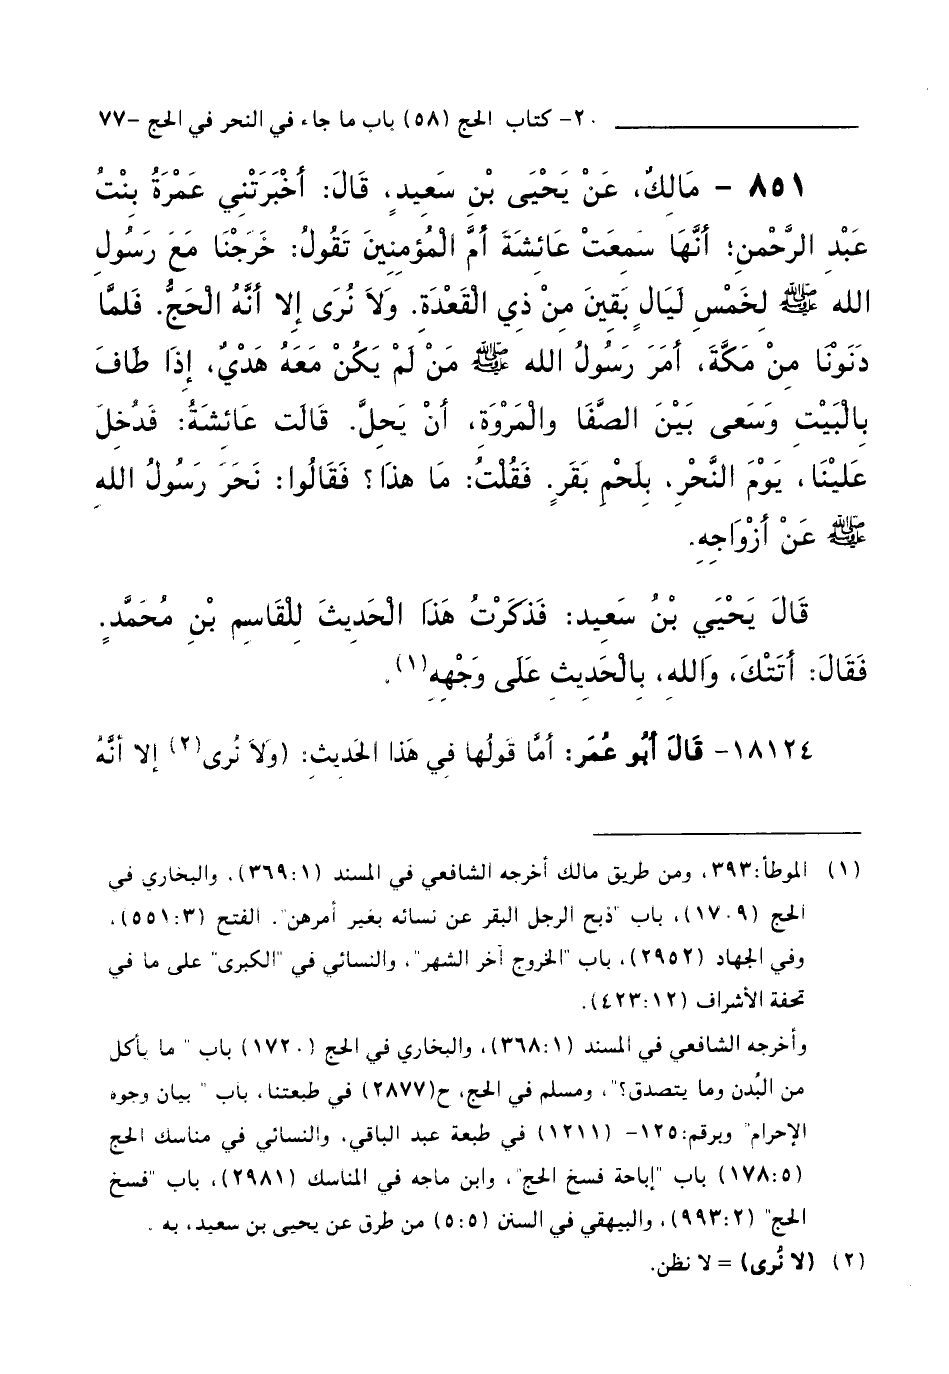 ٢٠- كتاب الحج (٥٨) باب ما جاء في النحر في الحج -٧٧
٨٥١ - مَالكٌ، عَنْ يَحْيَى بْنِ سَعِيدٍ، قَالَ: أخْبَرَتْنِي عَمْرَةُ بنْتُ
عَبْد الرَّحْمنِ؛ أنَّهَا سَمعَتْ عَائشَةَ أمَّ الْمُؤمنِينَ تَقُولُ: خَرَجْنَا مَعَ رَسُولِ
الله ﷺ لخَمْسِ لَيَالٍ بَقِينَ منْ ذِي الْقَعْدَة. وَلاَ نُرَى إلا أنَّهُ الْحَجُّ. فَلمَّا
دَنَوْنَا منْ مَكَّةَ، أمَرَ رَسُولُ الله ﷺ مَنْ لَمْ يَكُنْ مَعَهُ هَدْيٌ، إذَا طَافَ
بالْبَيْتِ وَسَعَى بَيْنَ الصَّفَا والْمَرْوَة، أنْ يَحلَّ. قَالَت عَائشَةُ: فَدُخلَ
عَلَيْنَا، يَوْمَ النَّحْرِ، بلَحْمِ بَقَرٍ. فَقُلْتُ: مَا هذَا؟ فَقَالُوا: نَحَرَ رَسُولُ الله
ﷺ عَنْ أزْوَاجِهِ.
قَالَ يَحْيَي بْنُ سَعيد: فَذكَرْتُ هَذَا الْحَديثَ للْقَاسِمِ بْنِ مُحَمَّدٍ.
فَقَالَ: أتَتْكَ، وَاللهِ، بالْحَديثِ عَلَى وَجْهِهِ(١).
١٨١٢٤- قَالَ أبُو عُمَر: أمَّا قَولُها فِي هَذا الحَديث: (وَلاَ نُرى(٢) إلا أنَّهُ
(١) الموطأ:٣٩٣، ومن طريق مالك أخرجه الشافعي في المسند (٣٦٩:١)، والبخاري في
الحج (١٧٠٩)، باب "ذبح الرجل البقر عن نسائه بغير أمرهن". الفتح (٥٥١:٣)،
وفي الجهاد (٢٩٥٢)، باب "الخروج آخر الشهر"، والنسائي في "الكبرى" على ما في
تحفة الأشراف (٤٢٣:١٢).
وأخرجه الشافعي في المسند (٣٦٨:١)، والبخاري في الحج (١٧٢٠) باب " ما يأكل
من البُدن وما يتصدق؟"، ومسلم في الحج، ح(٢٨٧٧) في طبعتنا، باب " بيان وجوه
الإحرام" وبرقم:١٢٥- (١٢١١) في طبعة عبد الباقي، والنسائي في مناسك الحج
(١٧٨:٥) باب "إباحة فسخ الحج"، وابن ماجه في المناسك (٢٩٨١)، باب "فسخ
الحج" (٩٩٣:٢)، والبيهقي في السنن (٥:٥) من طرق عن يحيى بن سعيد، به .
(٢) (لا نُرى) = لا نظن.